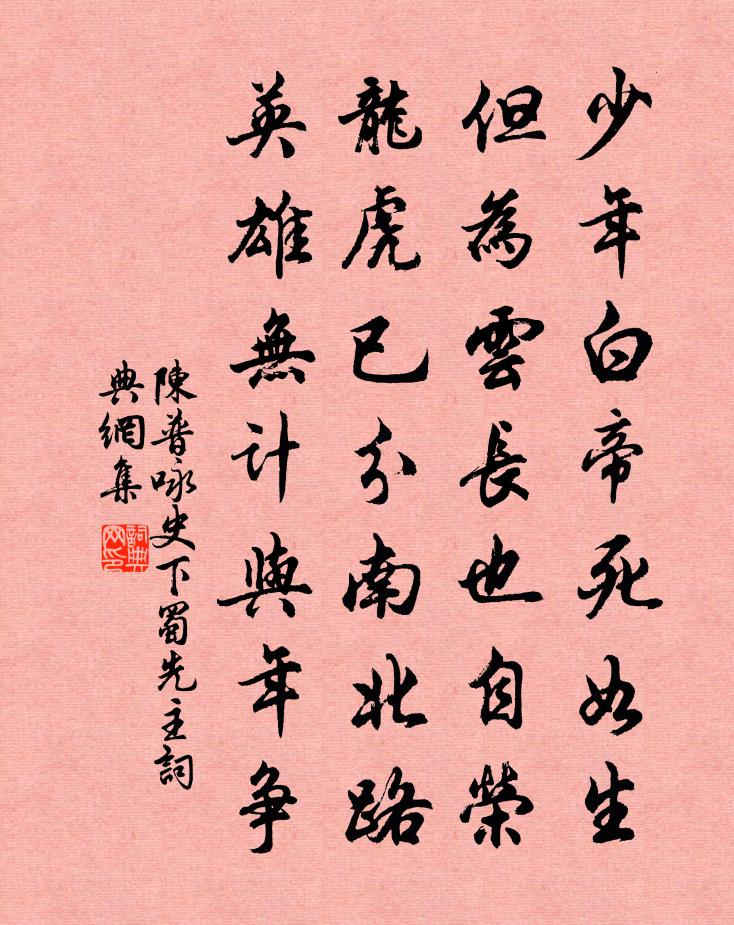 少年白帝死如生
但為雲長也自榮
龍虎已分南北路
英雄無計與年争
陳普咏史下蜀先主詞
典網集
詞典网印